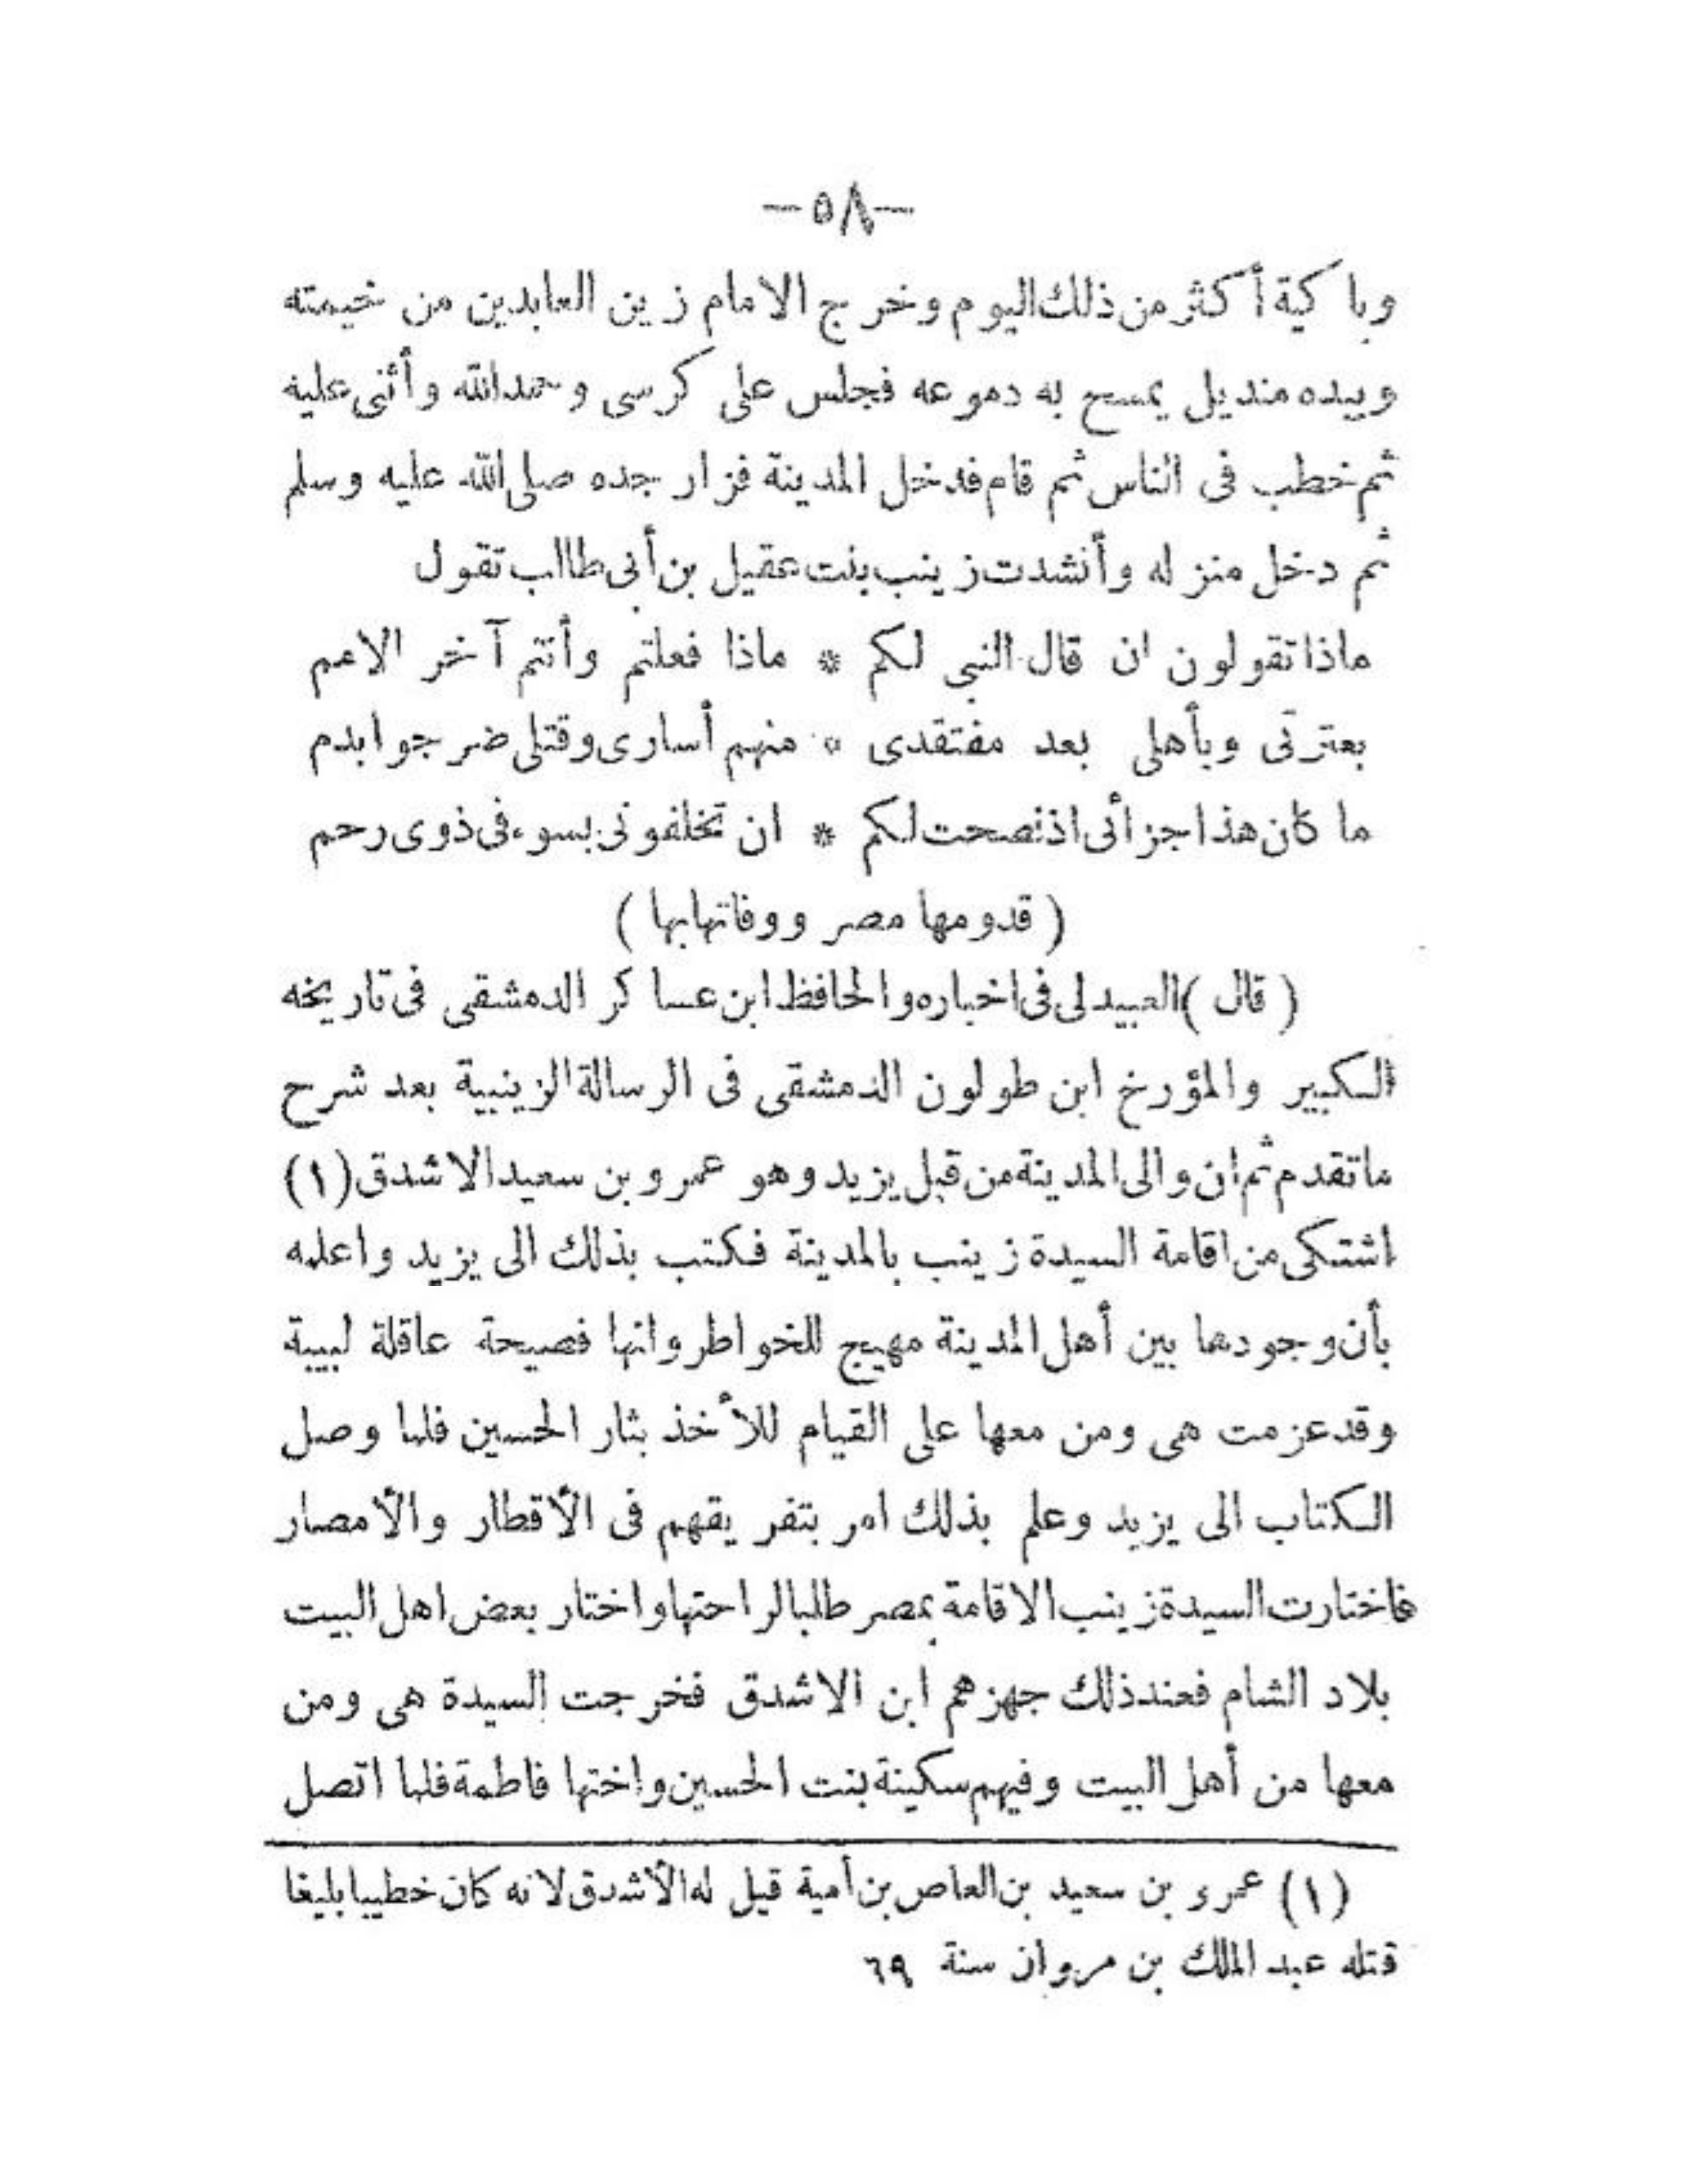 —٥٨—
وباكية أكثر من ذلك اليوم وخرج الامام زين العابدين من خيمته
وبيده منديل يمسح به دموعه فجلس على كرسى وحمد الله وأثنى عليه
ثم خطب فى الناس ثم قام فدخل المدينة فزار جده صلى الله عليه وسلم
ثم دخل منزله وأنشدت زينب بنت عقيل بن أبى طالب تقول
ماذا تقولون ان قال النبى لكم * ماذا فعلتم وأنتم آخر الامم
بعترتى وبأهلى بعد مفتقدى * منهم أسارى وقتلى ضرجوا بدم
ما كان هذا جزائى اذ نصحت لكم * ان تخلفونى بسوء فى ذوى رحم
( قدومها مصر ووفاتها بها )
( قال ) العبيدلى فى اخباره والحافظ ابن عساكر الدمشقى فى تاريخه
الكبير والمؤرخ ابن طولون الدمشقى فى الرسالة الزينبية بعد شرح
ما تقدم ثم ان والى المدينة من قبل يزيد وهو عمرو بن سعيد الاشدق (١)
اشتكى من اقامة السيدة زينب بالمدينة فكتب بذلك الى يزيد واعلمه
بأن وجودها بين أهل المدينة مهيج للخواطر وانها فصيحة عاقلة لبيبة
وقد عزمت هى ومن معها على القيام للأخذ بثار الحسين فلما وصل
الكتاب الى يزيد وعلم بذلك امر بتفريقهم فى الأقطار والأمصار
فاختارت السيدة زينب الاقامة بمصر طلبا لراحتها واختار بعض اهل البيت
بلاد الشام فعند ذلك جهزهم ابن الاشدق فخرجت السيدة هى ومن
معها من أهل البيت وفيهم سكينة بنت الحسين واختها فاطمة فلما اتصل
(١) عمرو بن سعيد بن العاص بن أمية قيل له الأشدق لانه كان خطيبا بليغا
قتله عبد الملك بن مروان سنة ٦٩